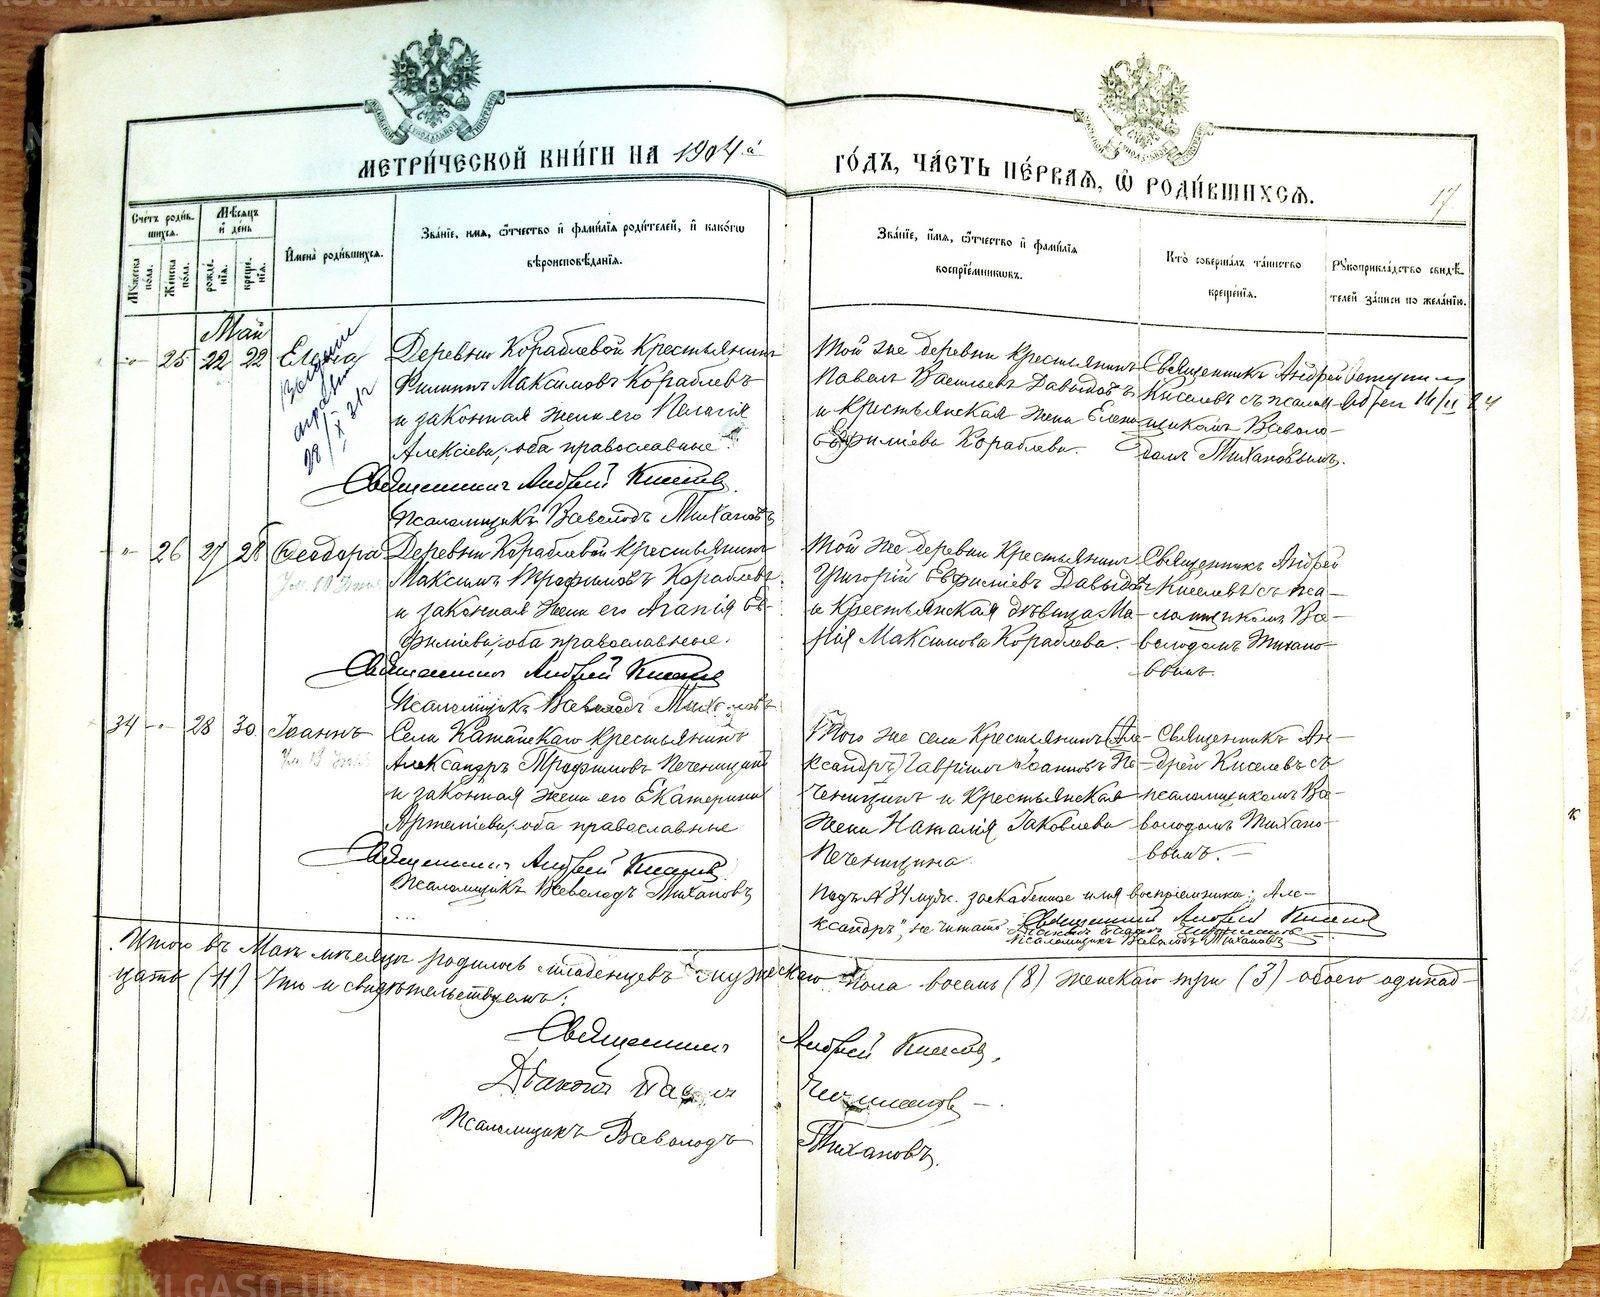 МЕТРИ́ЧЕСКОЙ КНИ́ГИ НА 1904.й
ГО́ДЪ, ЧА́СТЬ ПЕ́РВАѦ, Ѡ РОДИ́ВШИХСѦ.
17
Сче́тъ роди́в-
шихся.
Мѣ́сяцъ
и де́нь
Му́жеска по́ла.
Же́нска по́ла.
рожде́нія.
креще́нія.
Имена̀ роди́вшихся.
Зва́ніе, имя, ѻ́тчество и фами́лія роди́телей, и како́гѡ
вѣроисповѣ́данія.
Зва́ніе, и́мя, ѻ́тчество и фами́лія
воспріе́мниковъ.
Кто̀ соверша́лъ та́инство
креще́нія.
Рꙋкоприкла́дство свидѣ́-
телей за́писи по жела́нію.
Май
25 22 22 Елена
28/X 31г
Деревни Кораблевой крестьянинъ
Филиппъ Максимовъ Кораблевъ
и законная жена его Пелагія
Алексіева, оба православные.
Священникъ Андрей Киселевъ.
Псаломщикъ Всеволодъ Тихановъ
Той же деревни крестьянинъ
Павелъ Васильевъ Давыдовъ
и крестьянская жена Елена
Евфиміева Кораблева.
Священникъ Андрей
Киселевъ съ псалом-
щикомъ Всеволо-
домъ Тихановымъ.
26 27 28 Ѳеодора
Деревни Кораблевой крестьянинъ
Максимъ Трофимовъ Кораблевъ
и законная жена его Агапія Ев-
фиміева, оба православные.
Священникъ Андрей Киселевъ
Псаломщикъ Всеволодъ Тихановъ
Той же деревни крестьянинъ
Григорій Евфиміевъ Давыдовъ
и крестьянская дѣвица Ма-
рія Максимова Кораблева.
Священникъ Андрей
Киселевъ съ пса-
ломщикомъ Все-
володомъ Тихано-
вымъ.
34 28 30 Іоаннъ
Села крестьянинъ
Александръ Трофимовъ Печеницынъ
и законная жена его Екатерина
Артеміева, оба православные
Священникъ Андрей Киселевъ
Псаломщикъ Всеволодъ Тихановъ
Того же села крестьянинъ (Але-
ксандръ) Гавріилъ Іоанновъ Пе-
ченицынъ и крестьянская
жена Наталія Іаковлева
Печеницына
Священникъ Ан-
дрей Киселевъ съ
псаломщикомъ Все-
володомъ Тихано-
вымъ. –
Подъ № 34 муж. заскобенное имя воспріемника: „Але-
ксандръ", не читать Священникъ Андрей Киселевъ
Псаломщикъ Всеволодъ Тихановъ
Итого въ Маѣ мѣсяцѣ родилось младенцевъ мужескаго пола восемь (8) женскаго три (3) обоего одинад-
цать (11) Что и свидѣтельствуемъ:
Священникъ Андрей Киселевъ.
Діаконъ Павелъ
Псаломщикъ Всеволодъ Тихановъ.
METRIKI.GASO-URAL.RU